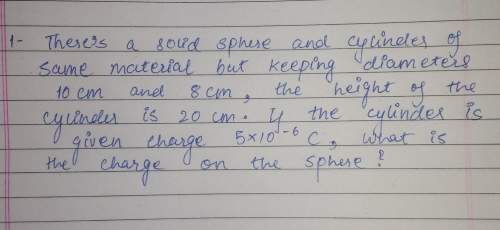 1- There's a solid sphere and cylinder of
same material but keeping diameters
10 cm and 8 cm, the height of the
cylinder is 20 cm. If the cylinder is
given charge 5×10⁻⁶ C, what is
the charge on the sphere?